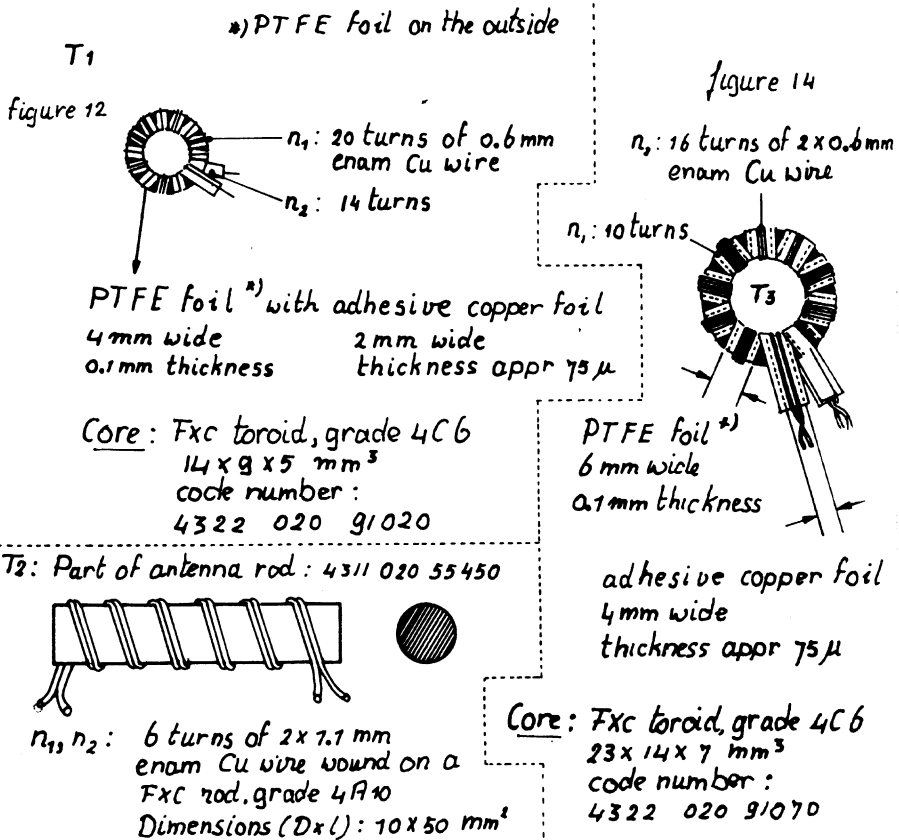 *) PTFE foil on the outside
T1
figure 12
n1: 20 turns of 0.6mm
enam Cu wire
n2: 14 turns
PTFE foil *) with adhesive copper foil
4mm wide
2mm wide
0.1mm thickness
thickness appr 75 µ
Core: Fxc toroid, grade 4C6
14 x 9 x 5 mm³
code number:
4322 020 91020
T2: Part of antenna rod: 4311 020 55450
n1, n2: 6 turns of 2x1.1 mm
enam Cu wire wound on a
Fxc rod, grade 4A10
Dimensions (Dxl): 10x50 mm²
figure 14
n2: 16 turns of 2x0.6mm
enam Cu wire
n1: 10 turns
T3
PTFE foil *)
6 mm wide
0.1mm thickness
adhesive copper foil
4mm wide
thickness appr 75 µ
Core: Fxc toroid, grade 4C6
23 x 14 x 7 mm³
code number:
4322 020 91070